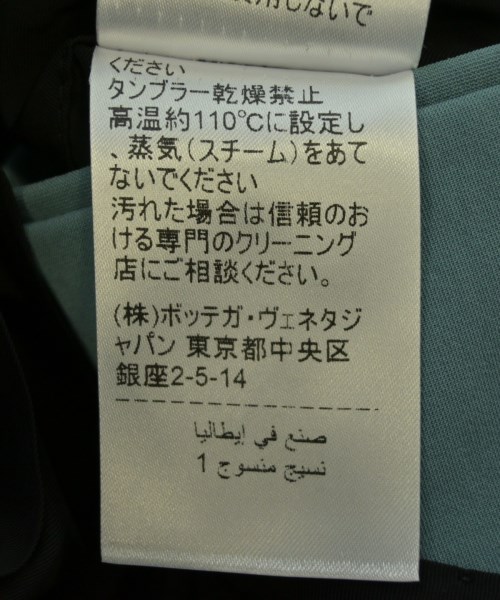 用しないで
ください
タンブラー乾燥禁止
高温約110℃に設定し
、蒸気(スチーム)をあて
ないでください
汚れた場合は信頼のお
ける専門のクリーニング
店にご相談ください。
(株)ボッテガ・ヴェネタジ
ャパン 東京都中央区
銀座2-5-14
صنع في إيطاليا
نسيج منسوج 1